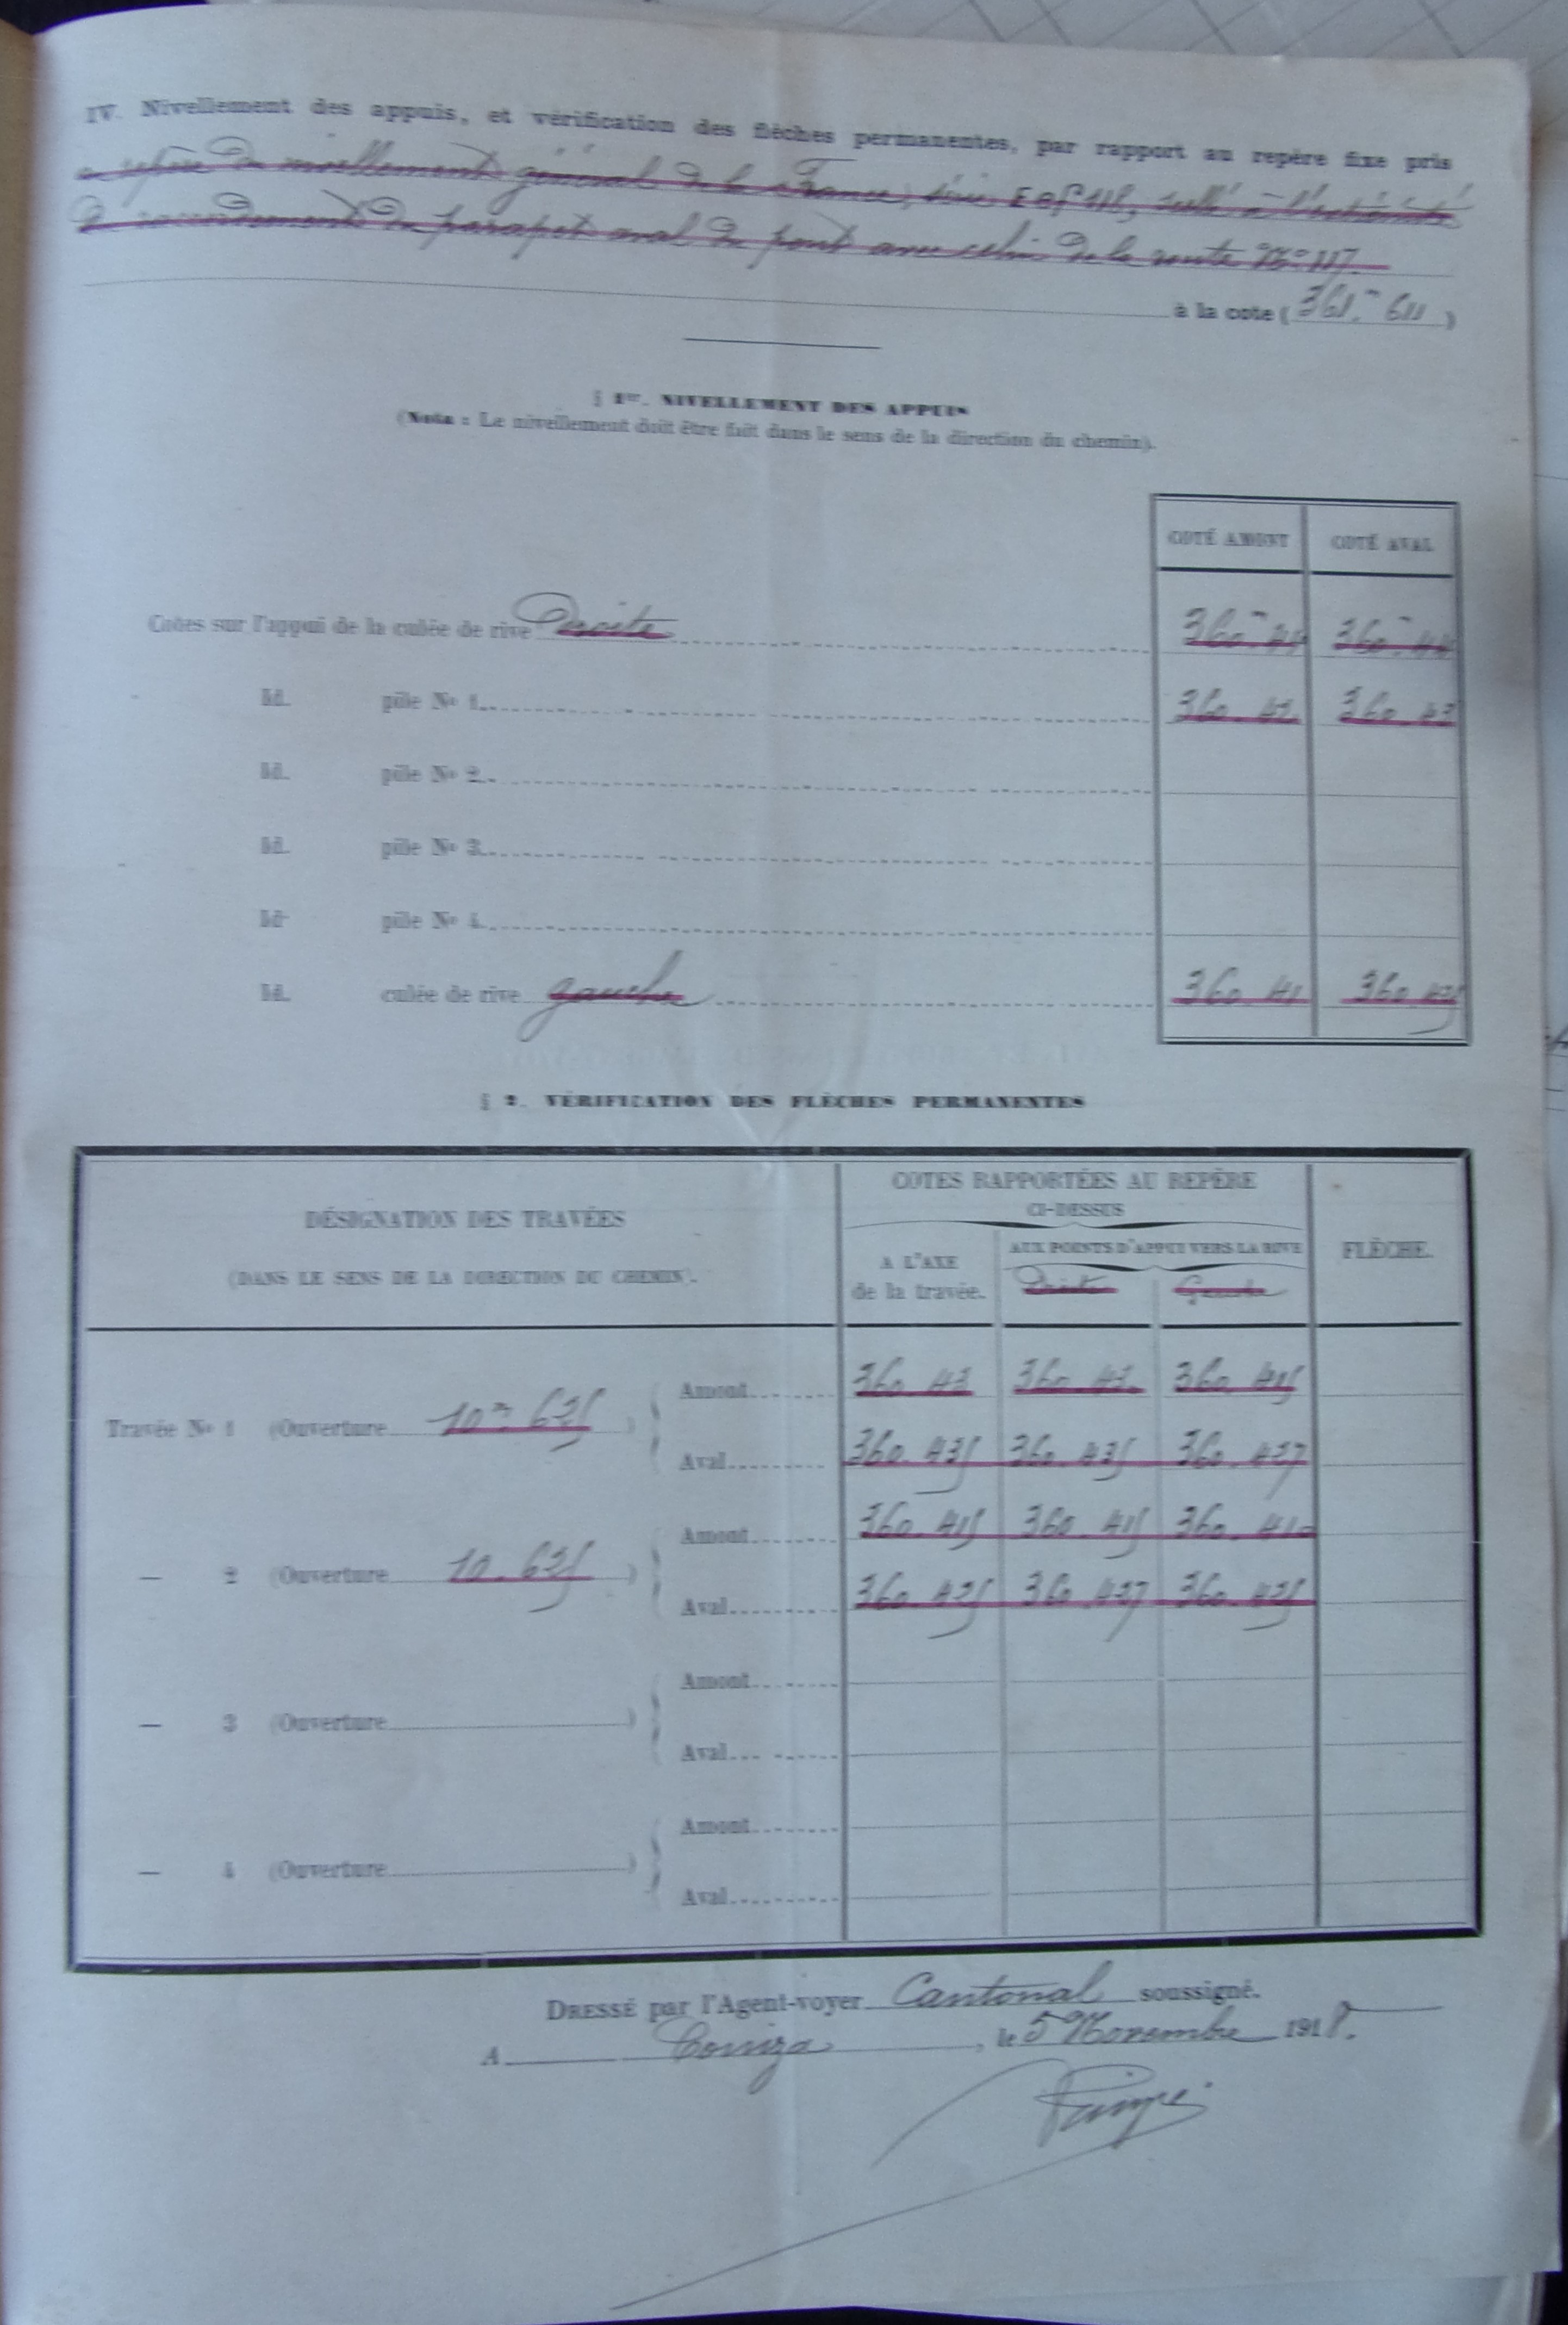 IV. Nivellement des appuis, et vérification des flèches permanentes, par rapport au repère fixe pris
repère du nivellement général de la France, série scellé à l'extrémité
de raccordement du parapet aval du pont avec celui de la route Nº 117.
à la cote ( 361.m 611 )
§ 1er. NIVELLEMENT DES APPUIS
(Nota : Le nivellement doit être fait dans le sens de la direction du chemin).
COTÉ AMONT COTÉ AVAL
Cotes sur l'appui de la culée de rive Droite 360m 360m
Id. pile No 1. 360. 360. 43
Id. pile No 2.
Id. pile No 3.
Id. pile No 4.
Id. culée de rive gauche 360. 41 360. 425
§ 2. VÉRIFICATION DES FLÈCHES PERMANENTES
DÉSIGNATION DES TRAVÉES
(DANS LE SENS DE LA DIRECTION DU CHEMIN).
COTES RAPPORTÉES AU REPÈRE
CI-DESSUS
A L'AXE
de la travée.
AUX POINTS D'APPUI VERS LA RIVE
Droite Gauche
FLÈCHE.
Travée No 1 (Ouverture 10m 625 )
Amont 360. 43 360. 43. 360. 415
Aval 360. 435 360. 435 360. 427
— 2 (Ouverture 10. 625 )
Amont 360. 415 360. 415 360. 410
Aval 360. 425 360. 427 360. 425
— 3 (Ouverture )
Amont
Aval
— 4 (Ouverture )
Amont
Aval
DRESSÉ par l'Agent-voyer Cantonal soussigné.
A Couiza, le 5 Novembre 1918.